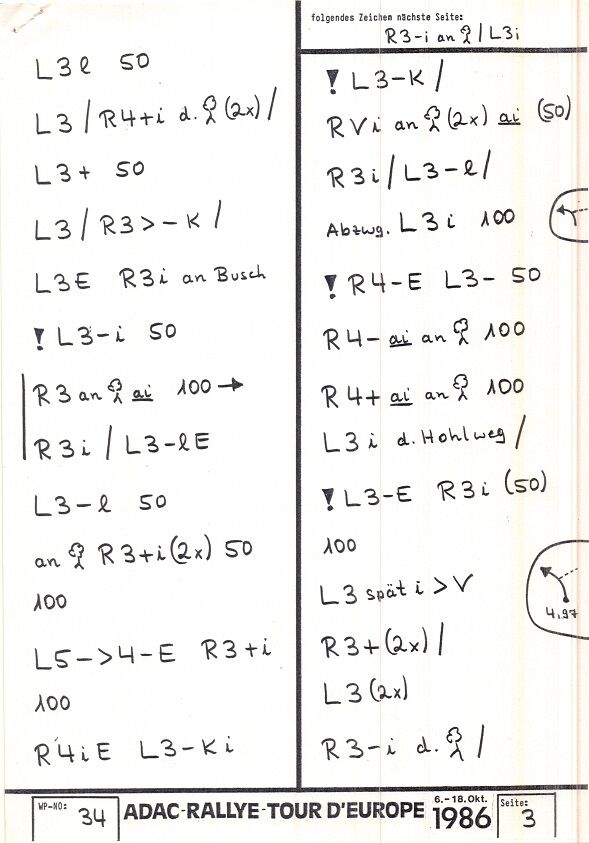 folgendes Zeichen nächste Seite:
R3-i an / L3i
L3l 50
L3 / R4+i d. (2x) /
L3+ 50
L3 / R3>-K /
L3E R3i an Busch
! L3-i 50
R3 an ai 100 →
R3i / L3-lE
L3-l 50
an R3+i (2x) 50
100
L5->4-E R3+i
100
R4iE L3-Ki
! L3-K /
RVi an (2x) ai (50)
R3i / L3-l /
Abzwg. L3i 100
! R4-E L3- 50
R4- ai an 100
R4+ ai an 100
L3i d. Hohlweg /
! L3-E R3i (50)
100
L3 spät i > V
4,97
R3+ (2x) /
L3 (2x)
R3-i d. /
WP-NO: 34
ADAC-RALLYE-TOUR D'EUROPE
6.-18. Okt.
1986
Seite: 3